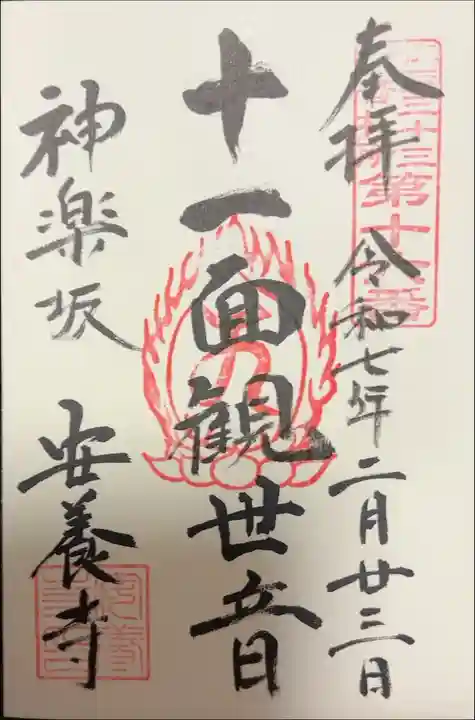 奉拝 令和七年二月廿三日
十一面観世音
神楽坂 安養寺
第十六番